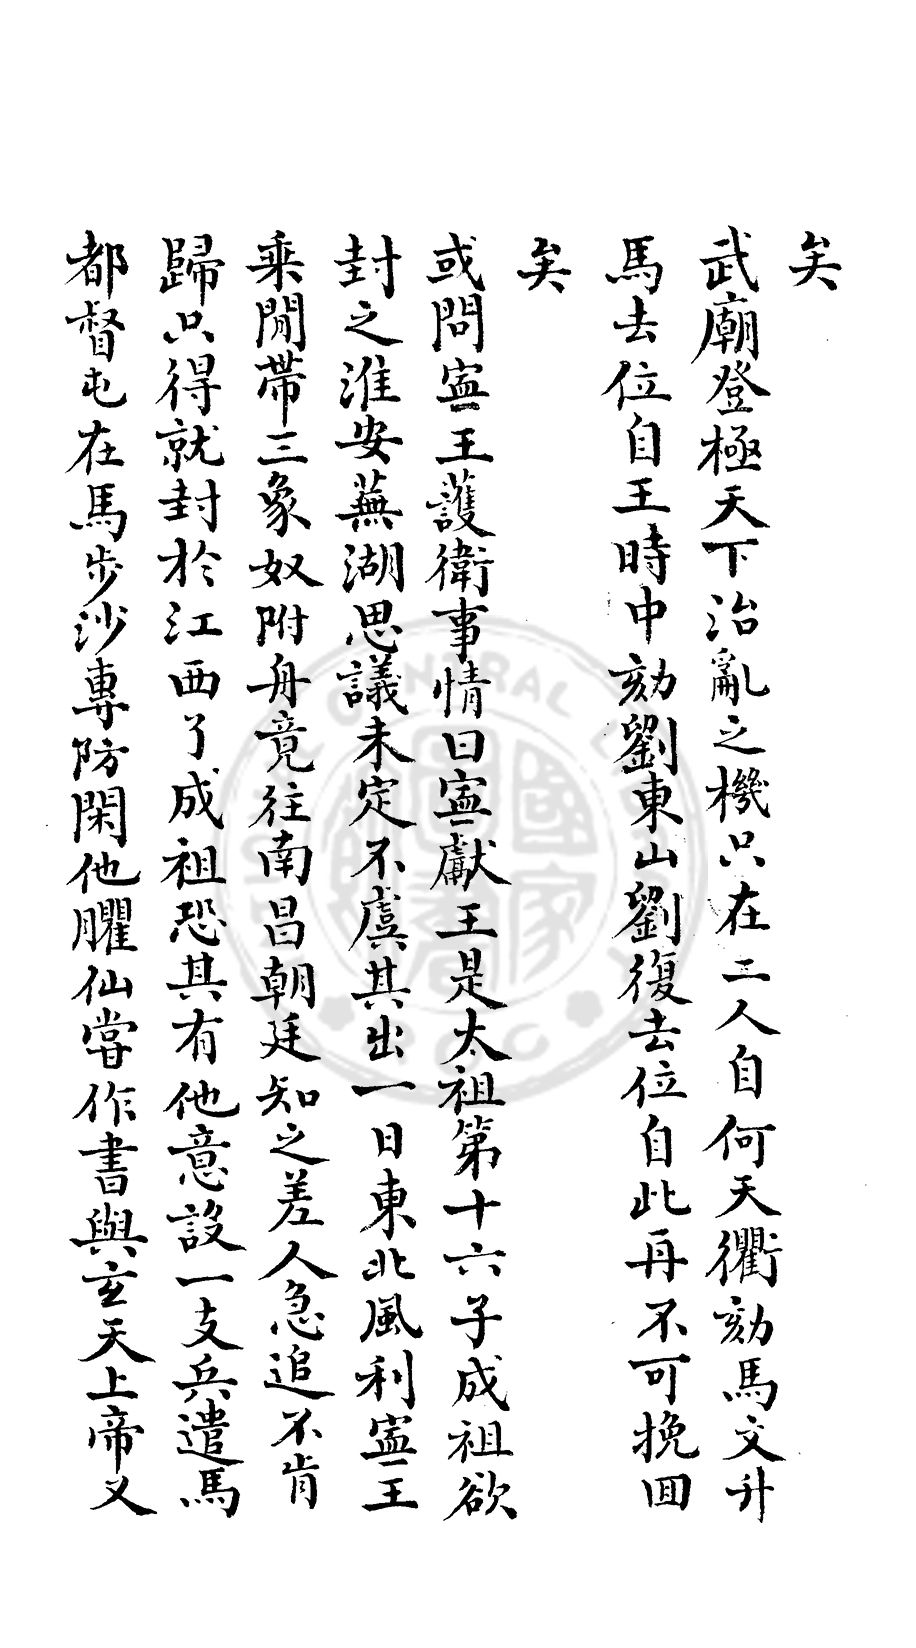 矣
武廟登極天下治亂之機只在二人自何天衢劾馬文升
馬去位自王時中劾劉東山劉復去位自此再不可挽回
矣
或問寍王護衛事情曰寍獻王是太祖第十六子成祖欲
封之淮安蕪湖思議未定不虞其出一日東北風利寍王
乘閒帶三象奴附舟竟往南昌朝廷知之差人急追不肯
歸只得就封於江西了成祖恐其有他意設一支兵遣馬
都督屯在馬步沙專防閑他臞仙嘗作書與玄天上帝又
NATIONAL CENTRAL LIBRARY
ROC
國家圖書館